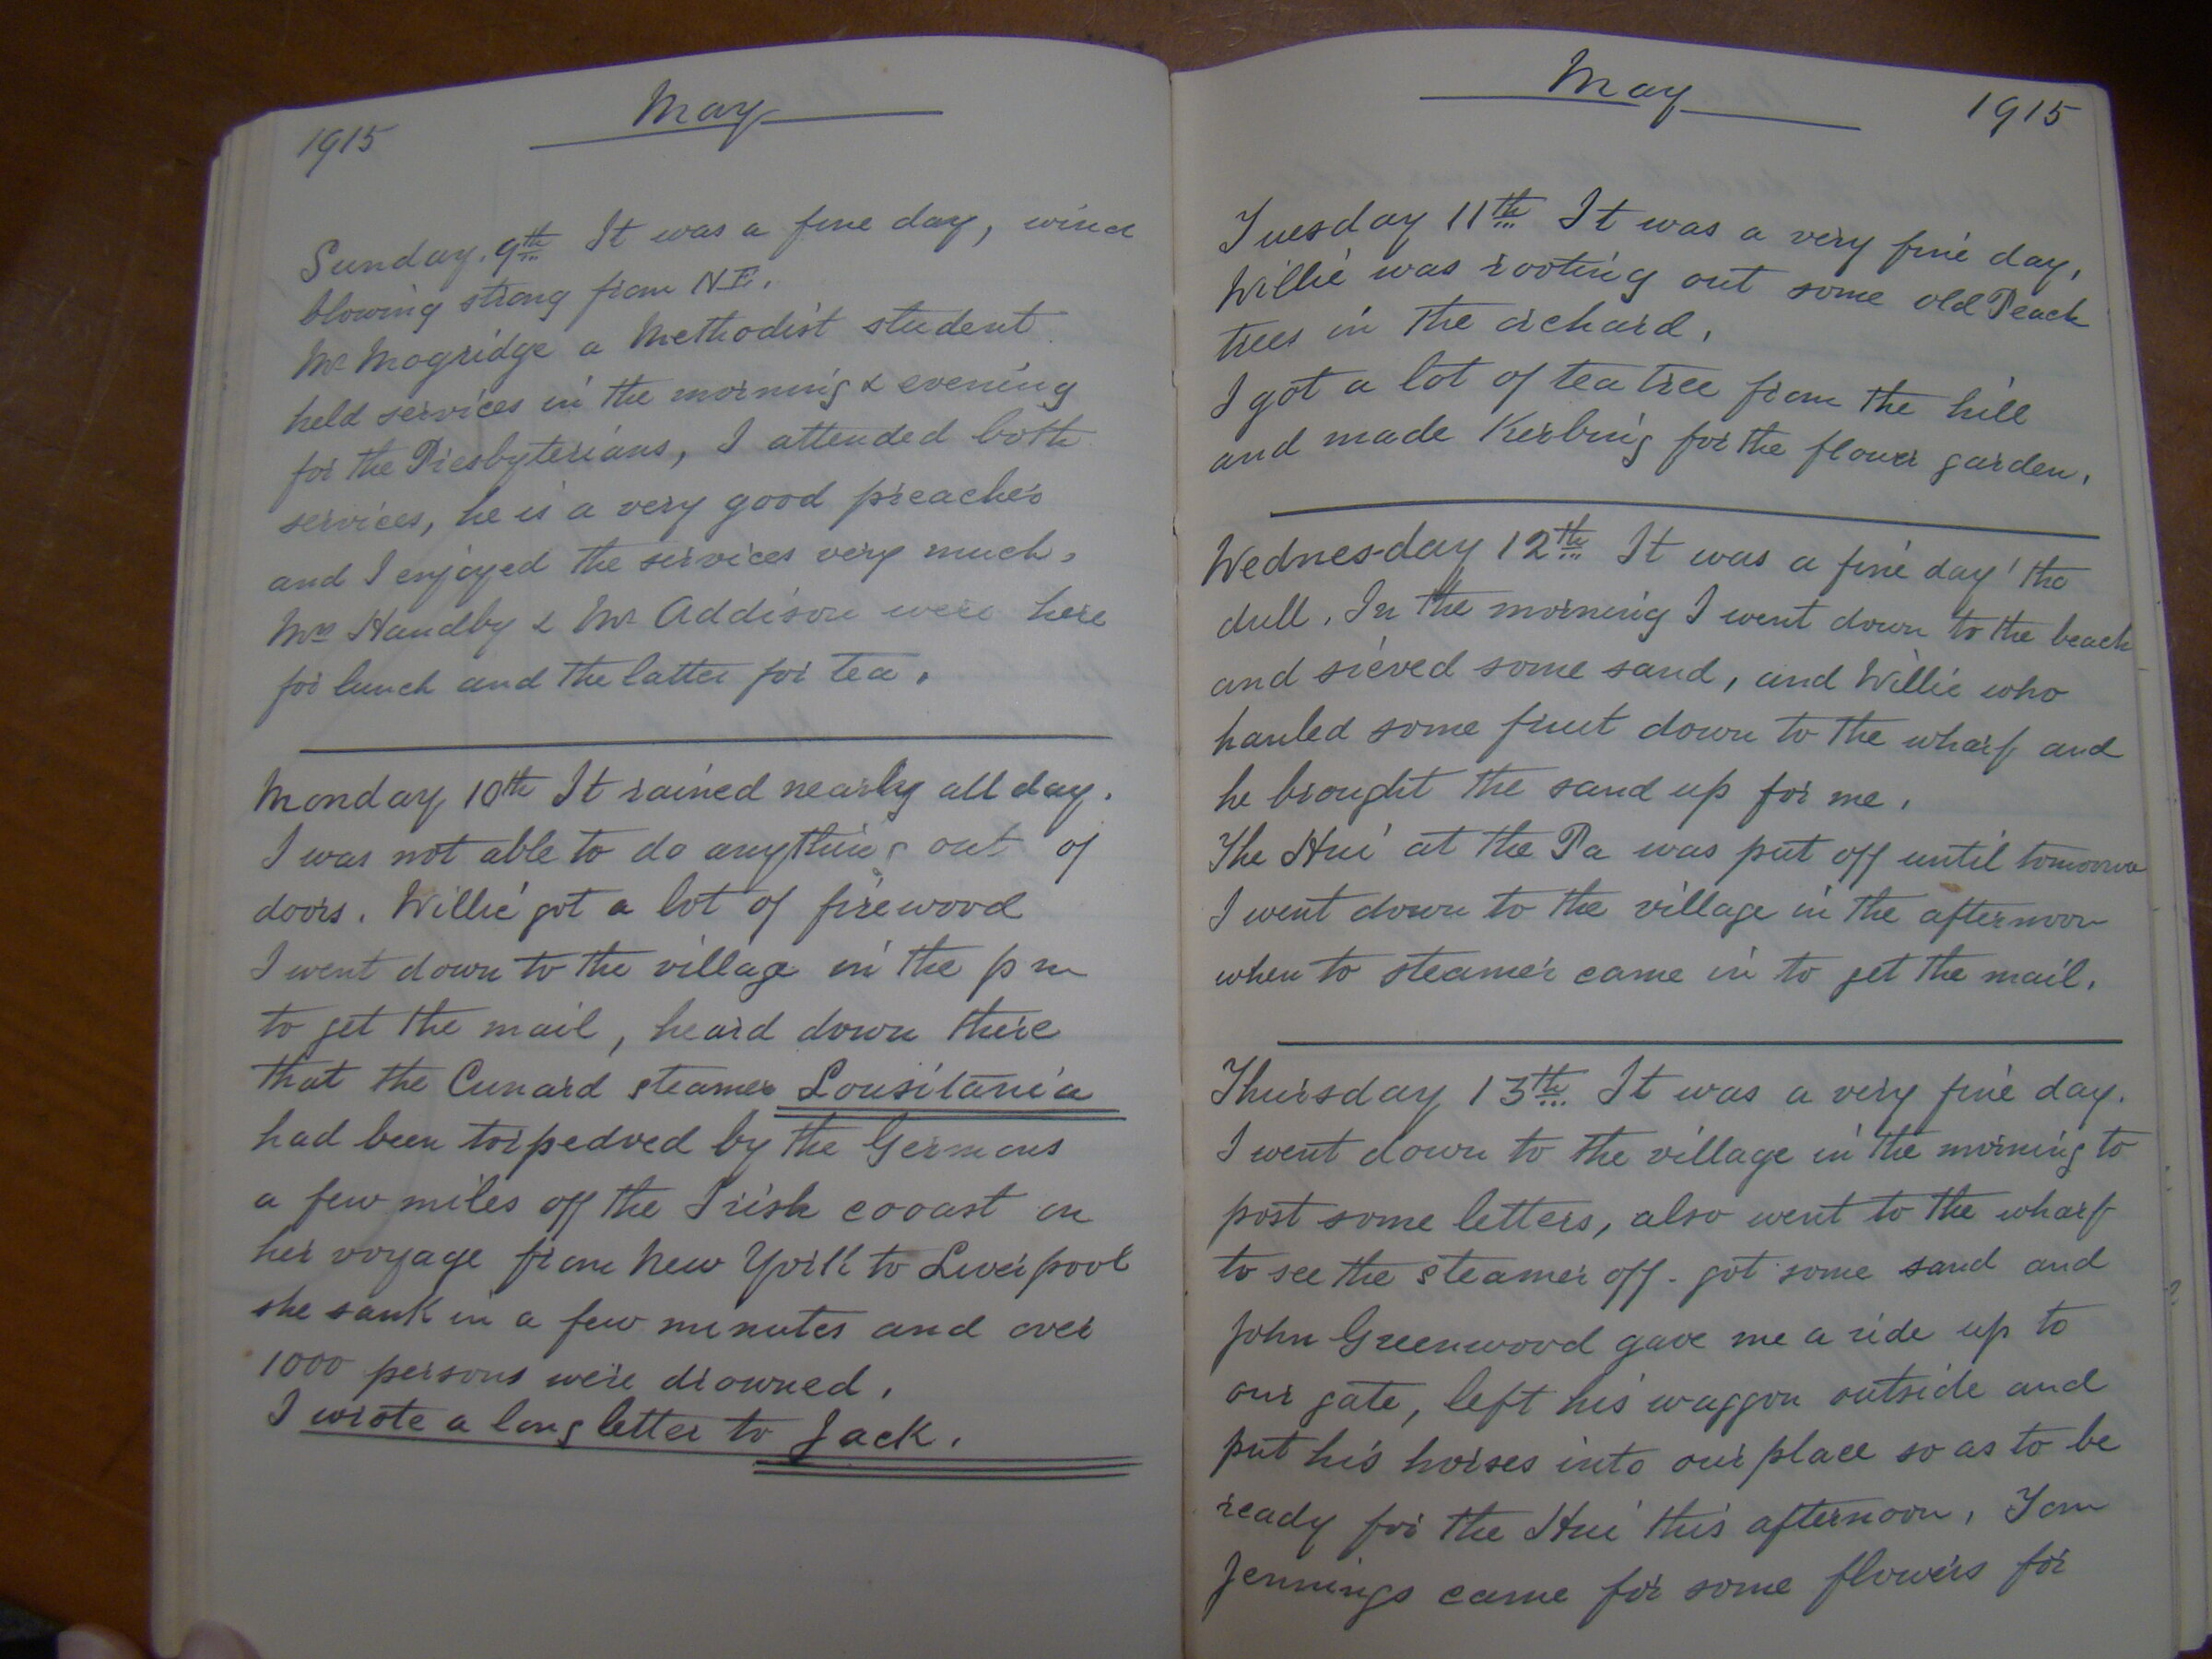 May
1915
Sunday. 9th It was a fine day, wind
blowing strong from NE.
Mr Mogridge a Methodist student
held services in the morning & evening
for the Presbyterians, I attended both
services, he is a very good preacher
and I enjoyed the services very much.
Mrs Handby & Mr Addison were here
for lunch and the latter for tea.
Monday 10th It rained nearly all day.
I was not able to do anything out of
doors. Willie got a lot of firewood
I went down to the village in the pm
to get the mail, heard down there
that the Cunard steamer Lousitania
had been torpedoed by the Germans
a few miles off the Irish cooast on
her voyage from New York to Liverpool
she sank in a few minutes and over
1000 persons were drowned.
I wrote a long letter to Jack.
May
1915
Tuesday 11th It was a very fine day,
Willie was rooting out some old Peach
trees in the orchard.
I got a lot of tea tree from the hill
and made Kerbing for the flower garden.
Wednesday 12th It was a fine day' tho
dull. In the morning I went down to the beach
and sieved some sand, and Willie who
hauled some fruit down to the wharf and
he brought the sand up for me.
The Hui at the Pa was put off until tomorrow
I went down to the village in the afternoon
when to steamer came in to get the mail.
Thursday 13th It was a very fine day.
I went down to the village in the morning to
post some letters, also went to the wharf
to see the steamer off - got some sand and
John Greenwood gave me a ride up to
our gate, left his waggon outside and
put his horses into our place so as to be
ready for the Hui this afternoon. Tom
Jennings came for some flowers for